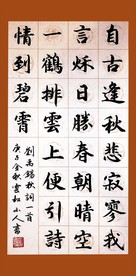 自古逢秋悲寂寥我
言秋日勝春朝晴空
一鶴排雲上便引詩
情到碧霄
劉禹錫秋詞一首
庚子金秋雲和小人書